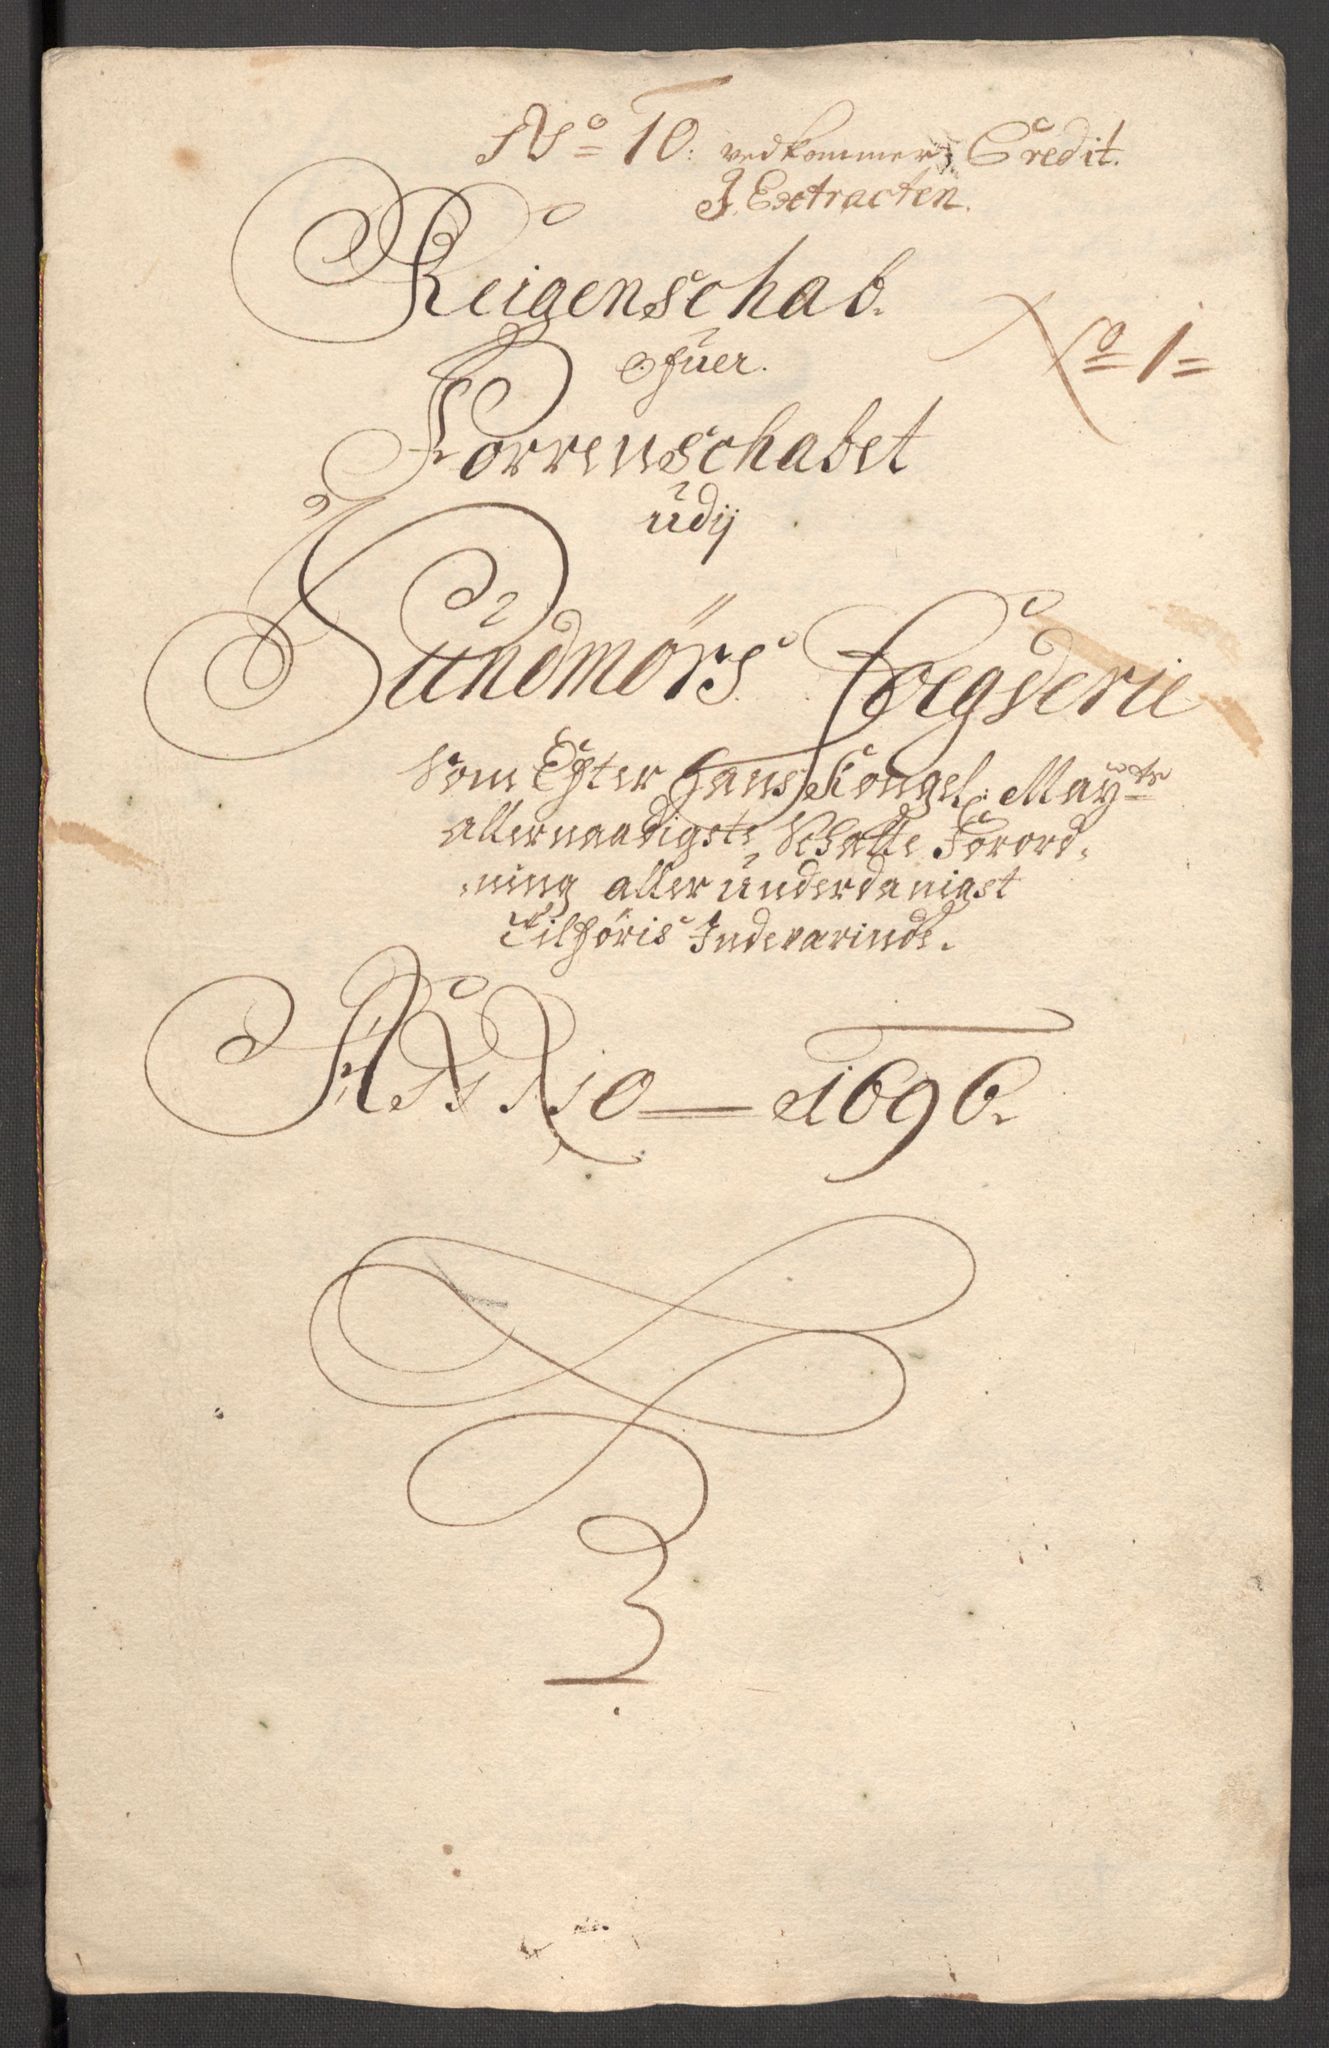 No 10: vedkommer Credit.
J Extracten.
Reigenschab.
Ofuer.
No 1
Forrenschabet
udij
Sundmørs Foegderie
Som Efter Hans Kongel: Maytz
allernaadigste Schatte Forord-
ning aller underdanigst
Tilhøris Indevarinde.
ANNO 1696.